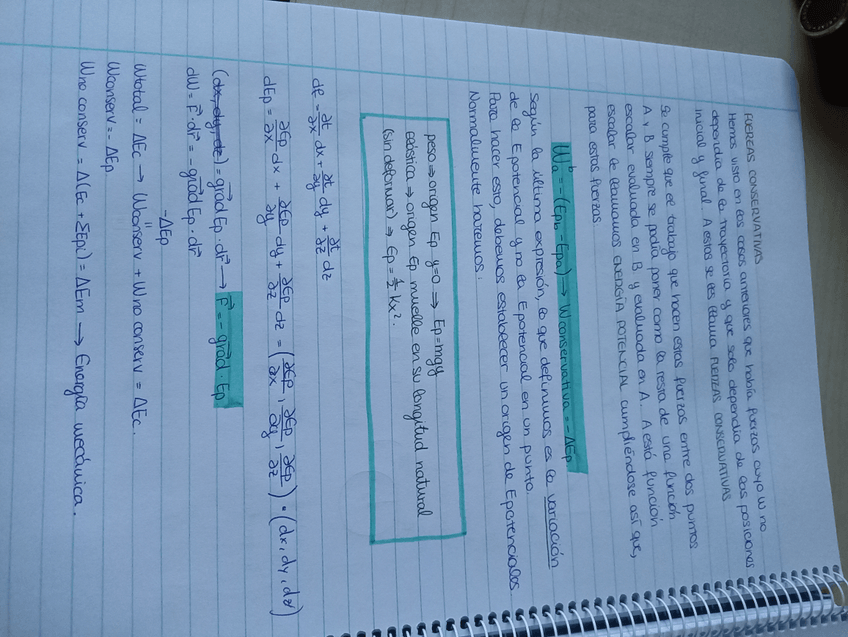 FUERZAS CONSERVATIVAS
Hemos visto en los casos anteriores que había fuerzas cuyo W no
dependía de la trayectoria y que solo dependía de las posiciones
inicial y final. A estas se les llama FUERZAS CONSERVATIVAS
Se cumple que el trabajo que hacen estas fuerzas entre dos puntos
A y B siempre se podía poner como la resta de una función
escalar evaluada en B y evaluada en A. A esta función
escalar le llamamos ENERGÍA POTENCIAL cumpliéndose así que,
para estas fuerzas
Wₐᵇ = -(Epb - Epa) → Wconservativa = -ΔEp
Según la última expresión, lo que definimos es la variación
de la Epotencial y no la Epotencial en un punto.
Para hacer esto, debemos establecer un origen de Epotenciales
Normalmente haremos:
peso ⇒ origen Ep y=0 ⇒ Ep=mgy
elástica ⇒ origen Ep muelle en su longitud natural
(sin deformar) ⇒ Ep = ½ kx².
df = ∂f/∂x dx + ∂f/∂y dy + ∂f/∂z dz
dEp = ∂Ep/∂x dx + ∂Ep/∂y dy + ∂Ep/∂z dz = (∂Ep/∂x, ∂Ep/∂y, ∂Ep/∂z) · (dx, dy, dz)
(dx, dy, dz) = grad Ep · dr → F = - grad · Ep
dW = F · dr = - grad Ep · dr
-ΔEp
Wtotal = ΔEc → Wconserv + Wno conserv = ΔEc.
Wconserv = - ΔEp
Wno conserv = Δ(Ec + ΣEpi) = ΔEm → Energía mecánica.